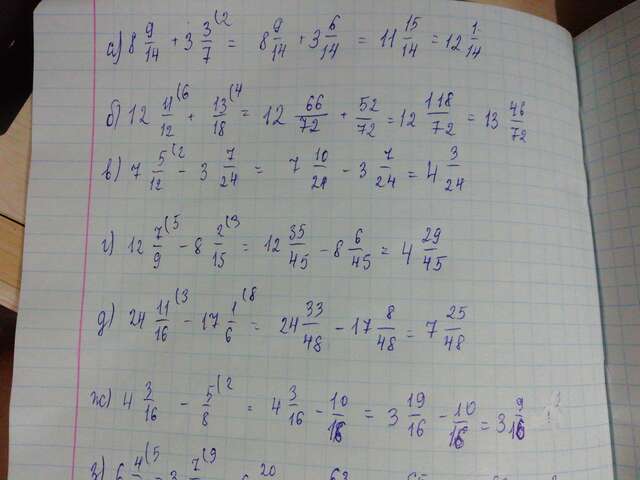 а) 8 9/14 + 3 3/7 (2 = 8 9/14 + 3 6/14 = 11 15/14 = 12 1/14
б) 12 11/12 (6 + 13/18 (4 = 12 66/72 + 52/72 = 12 118/72 = 13 46/72
в) 7 5/12 (2 - 3 7/24 = 7 10/24 - 3 7/24 = 4 3/24
г) 12 7/9 (5 - 8 2/15 (3 = 12 35/45 - 8 6/45 = 4 29/45
д) 24 11/16 (3 - 17 1/6 (8 = 24 33/48 - 17 8/48 = 7 25/48
ж) 4 3/16 - 5/8 (2 = 4 3/16 - 10/16 = 3 19/16 - 10/16 = 3 9/16
з) 6 4 (5 3 7 (9 20